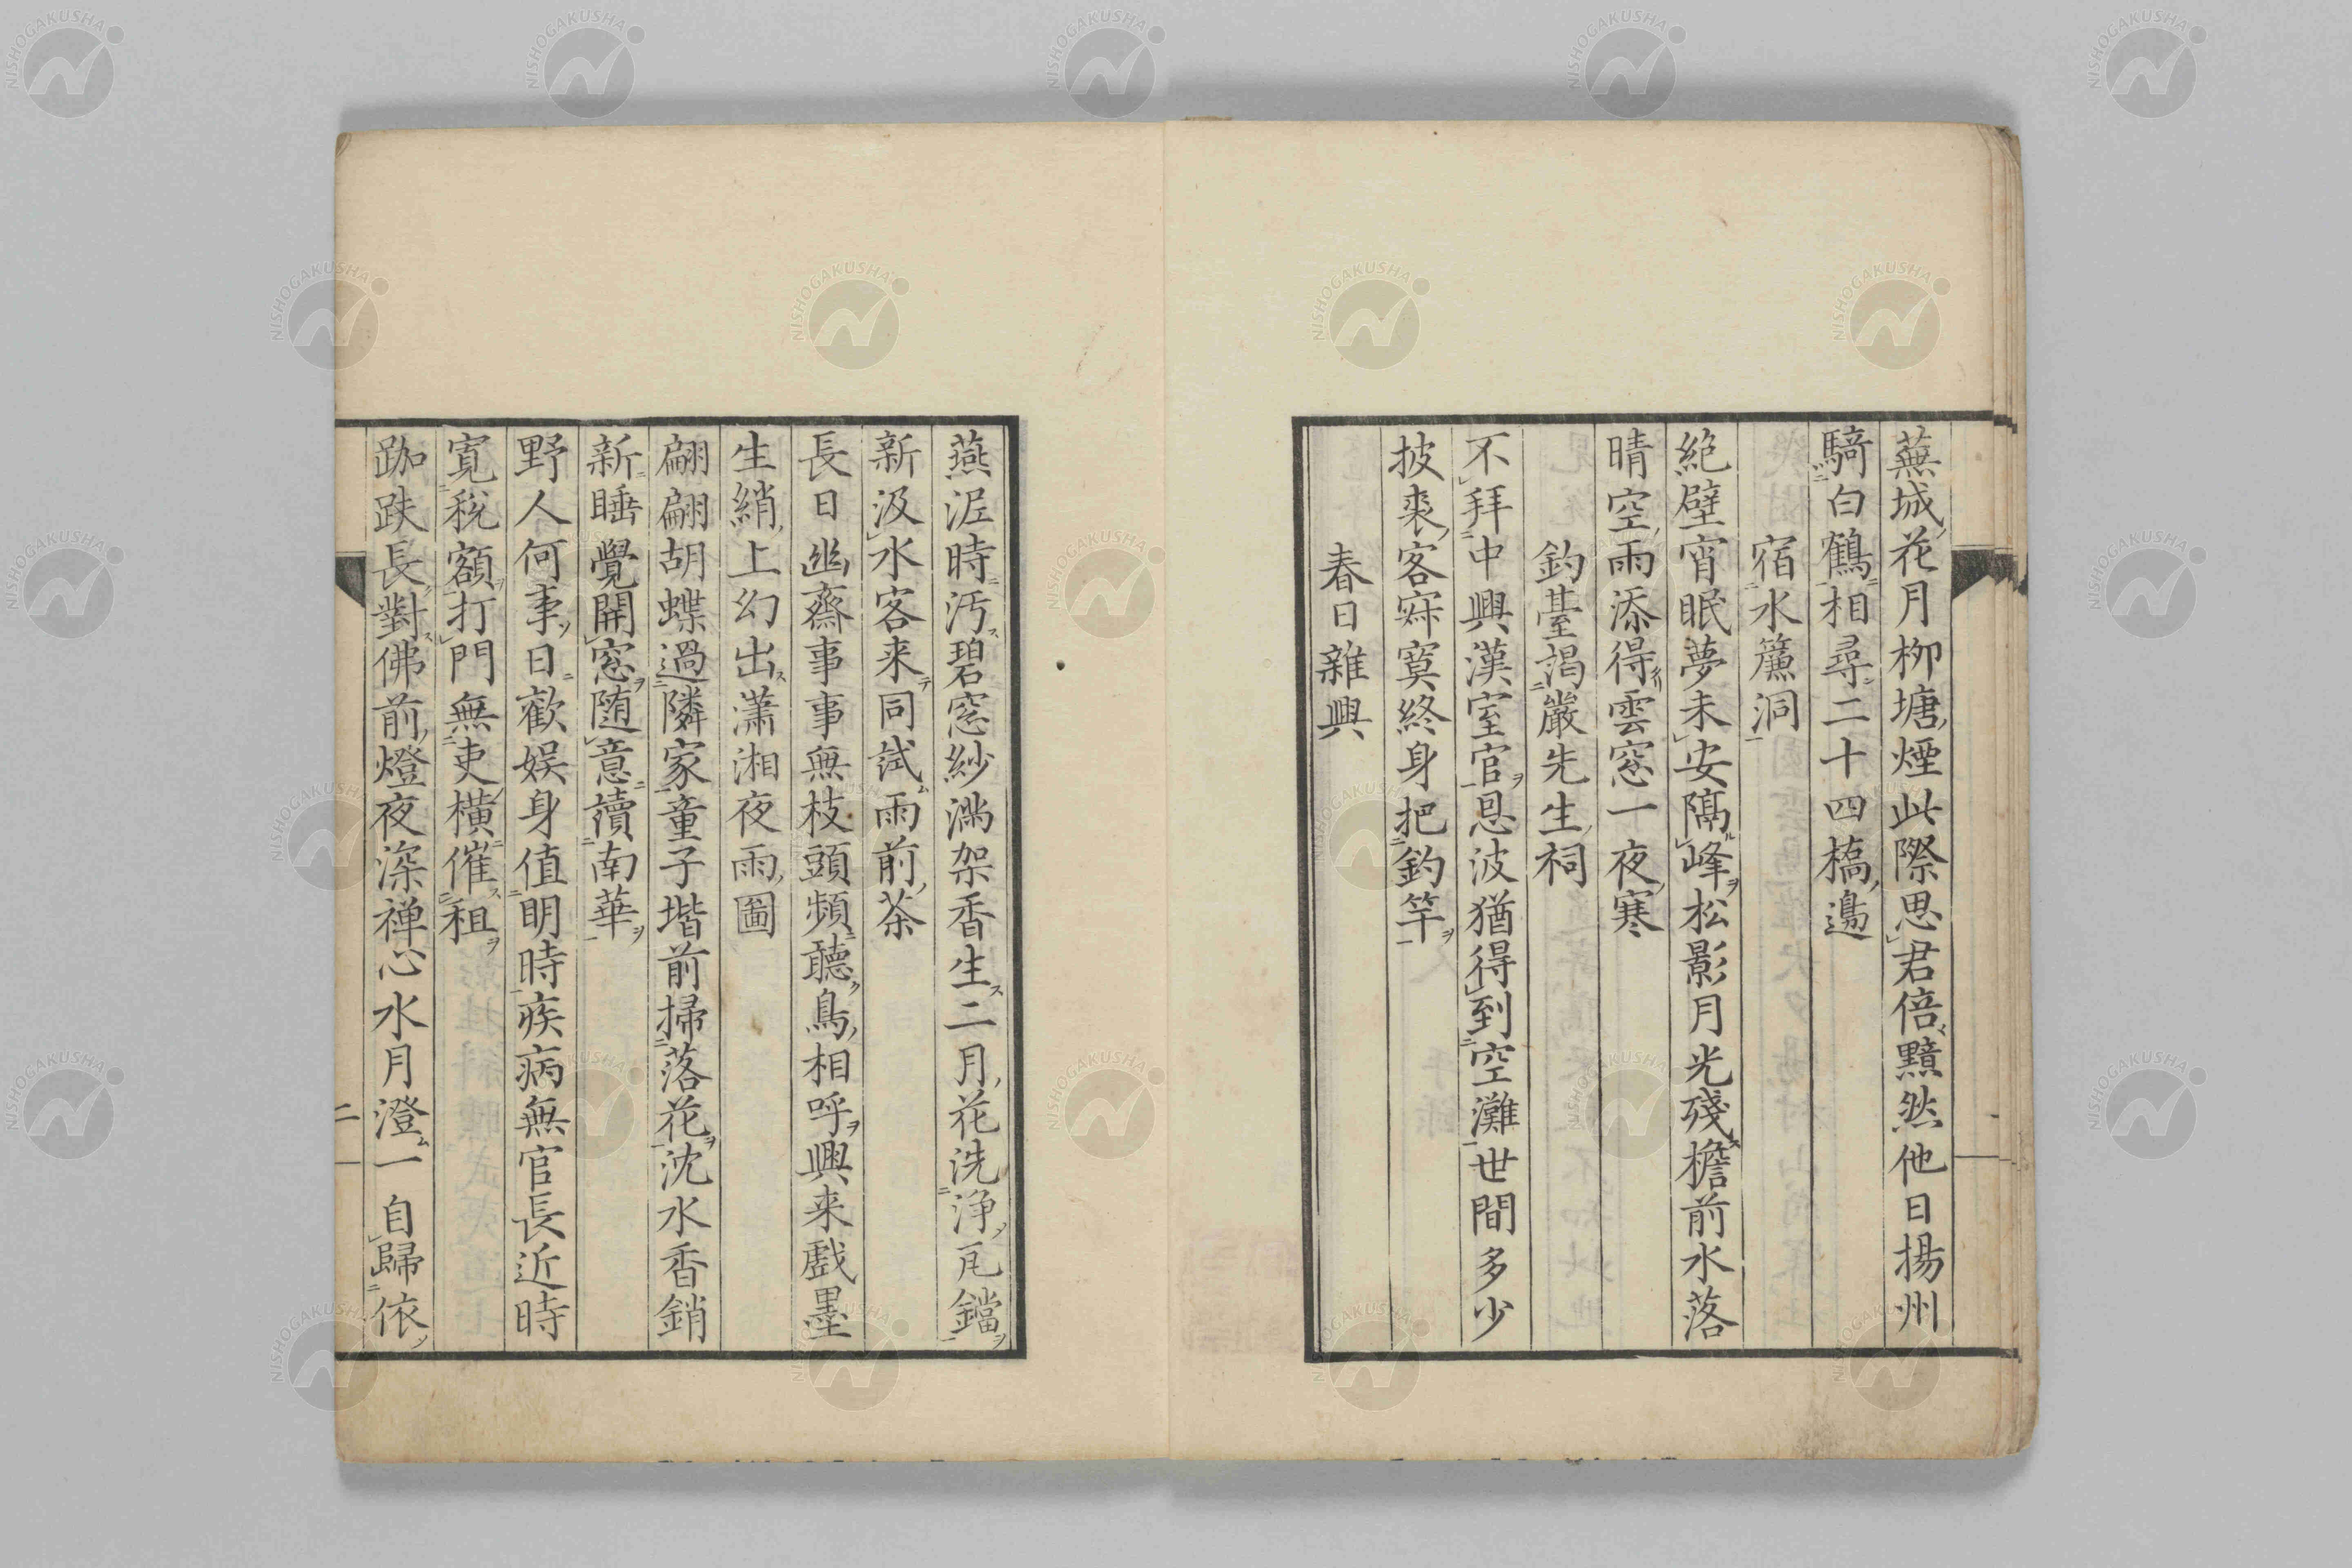 蕪城花月柳塘煙此際思君倍黯然他日揚州
騎白鶴相尋二十四橋邊
宿水簾洞
絶壁宵眠夢未安隔峰松影月光殘檐前水落
晴空雨添得雲窓一夜寒
釣臺謁嚴先生祠
不拜中興漢室官恩波猶得到空灘世間多少
披裘客寂寞終身把釣竿
春日雜興
燕泥時汚碧窓紗滿架香生二月花洗淨瓦鐺
新汲水客来同試雨前茶
長日幽齋事事無枝頭頻聽鳥相呼興来戲墨
生綃上幻出瀟湘夜雨圖
翩翩胡蝶過隣家童子堦前掃落花沈水香銷
新睡覺開窓随意讀南華
野人何事日歡娯身値明時疾病無官長近時
寛税額打門無吏横催租
跏趺長對佛前燈夜深禅心水月澄一自歸依
二
NISHOGAKUSHA